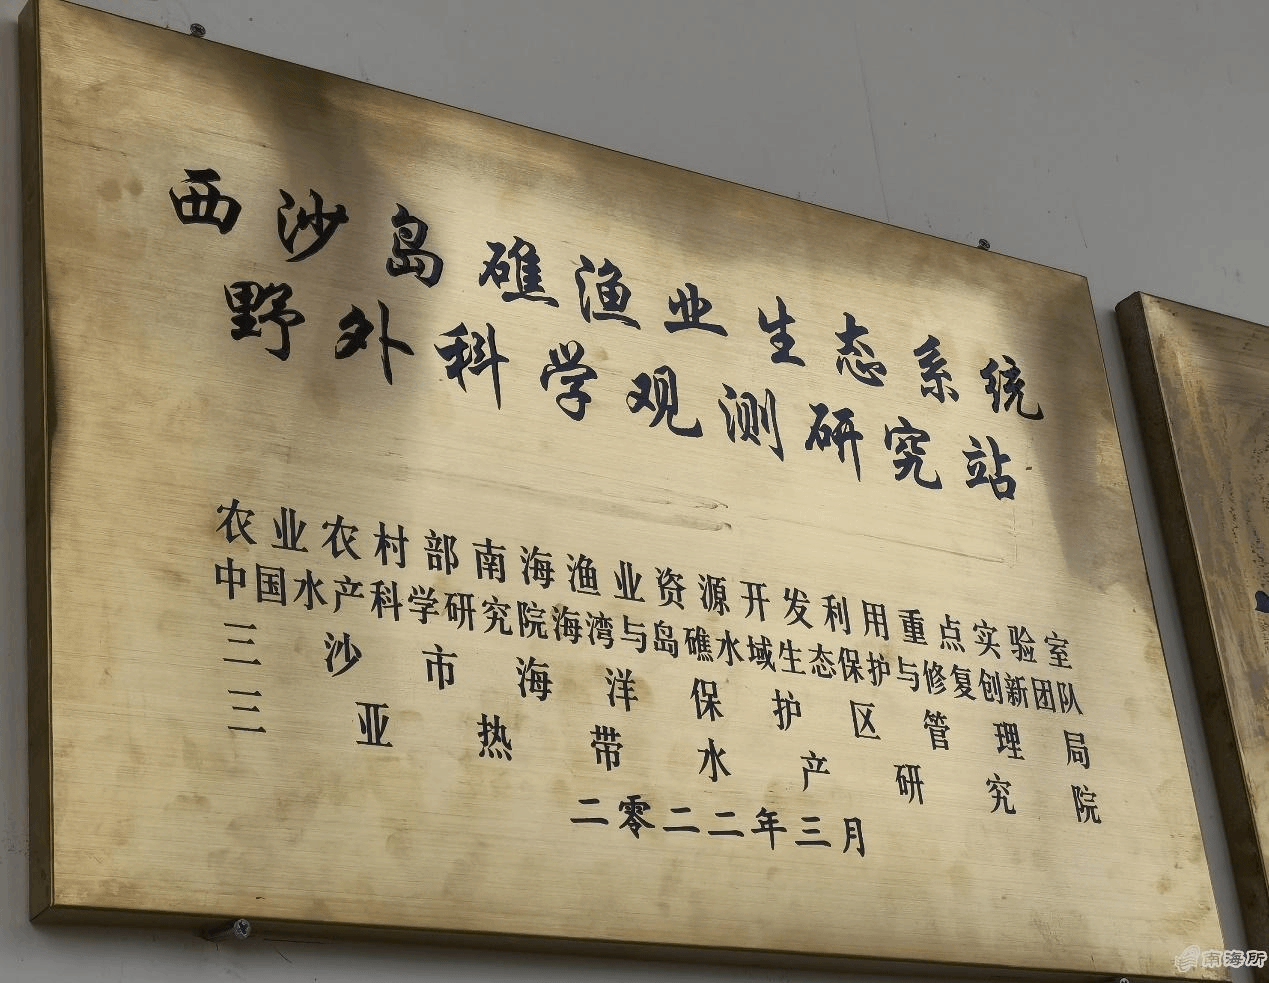 西沙岛礁渔业生态系统
野外科学观测研究站
农业农村部南海渔业资源开发利用重点实验室
中国水产科学研究院海湾与岛礁水域生态保护与修复创新团队
三沙市海洋保护区管理局
三亚热带水产研究院
二零二二年三月
南海所